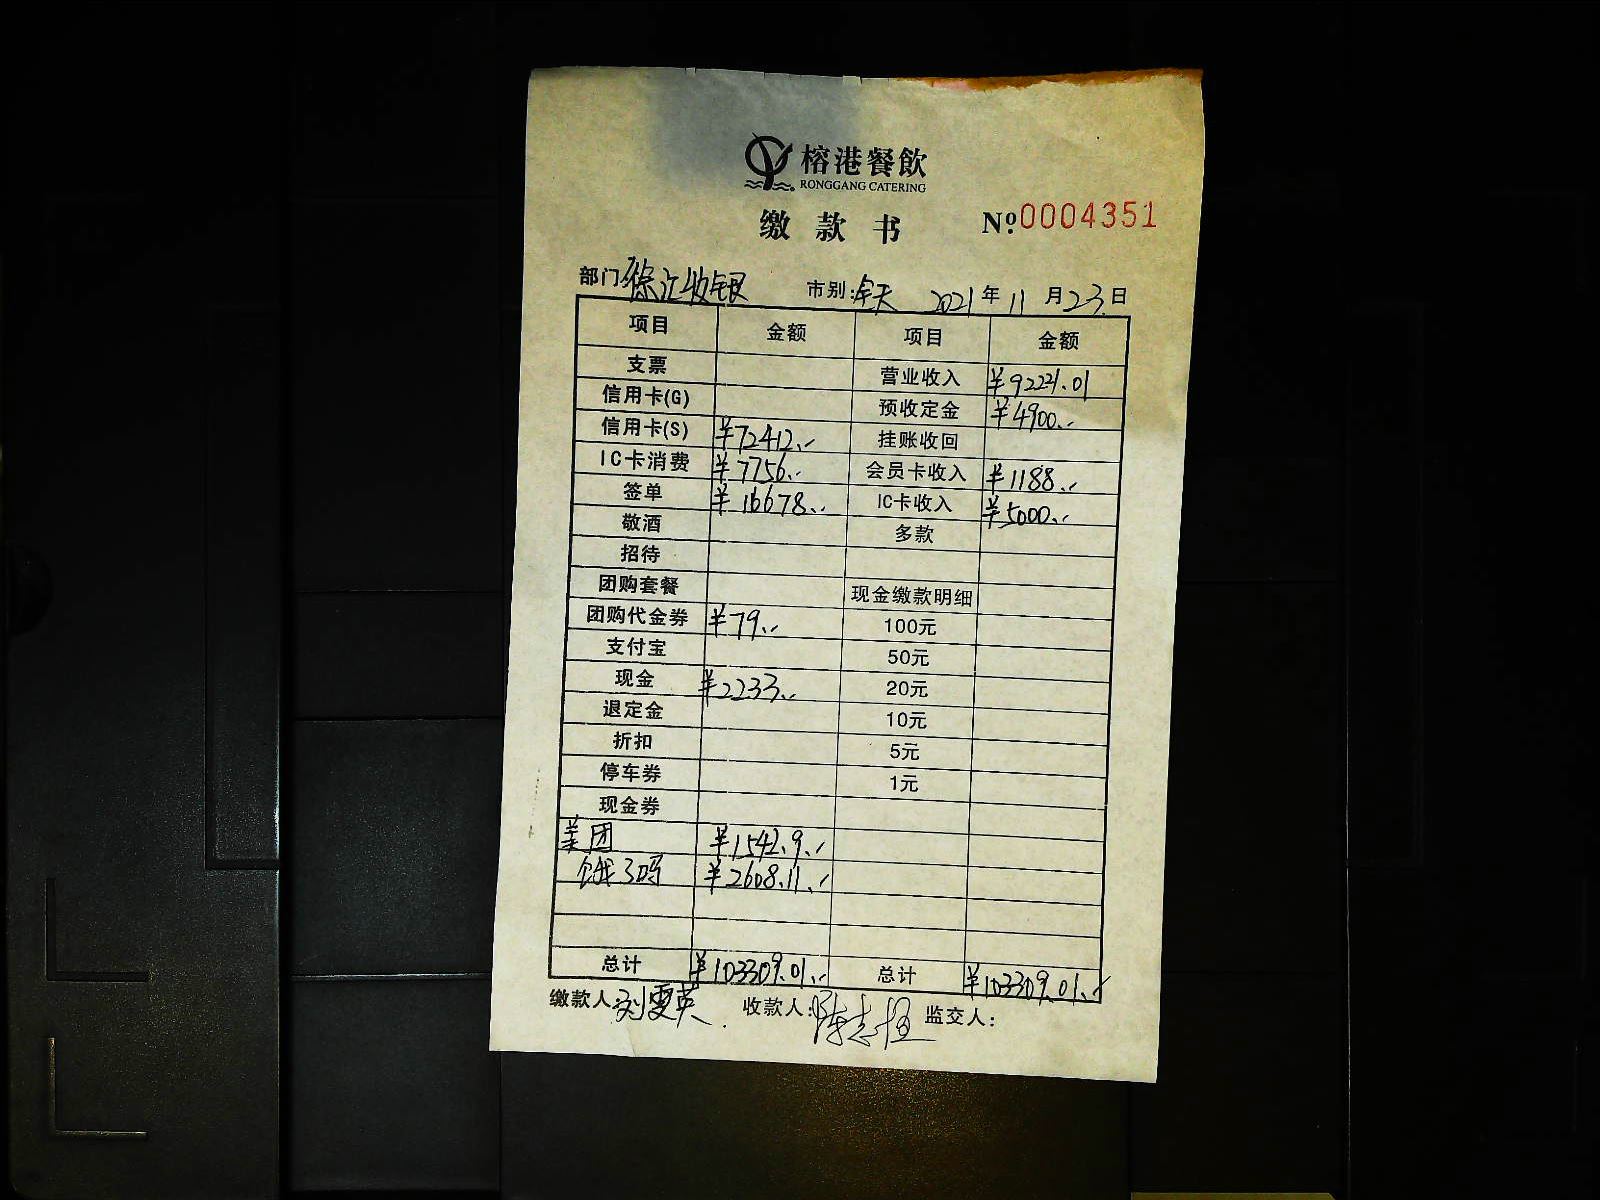 榕港餐飲
RONGGANG CATERING
缴款书 №0004351
部门:徐汇收银 市别:全天 2021年11月23日
项目 金额 项目 金额
支票 营业收入 ¥92221.01
信用卡(G) 预收定金 ¥4900.
信用卡(S) ¥72412. 挂账收回
IC卡消费 ¥7756. 会员卡收入 ¥1188.
签单 ¥16678. IC卡收入 ¥5000.
敬酒 多款
招待
团购套餐 现金缴款明细
团购代金券 ¥79. 100元
支付宝 50元
现金 ¥2233. 20元
退定金 10元
折扣 5元
停车券 1元
现金券
美团 ¥1542.9
饿了吗 ¥2608.11
总计 ¥103309.01 总计 ¥103309.01
缴款人:刘雯英 收款人:陈志恒 监交人: